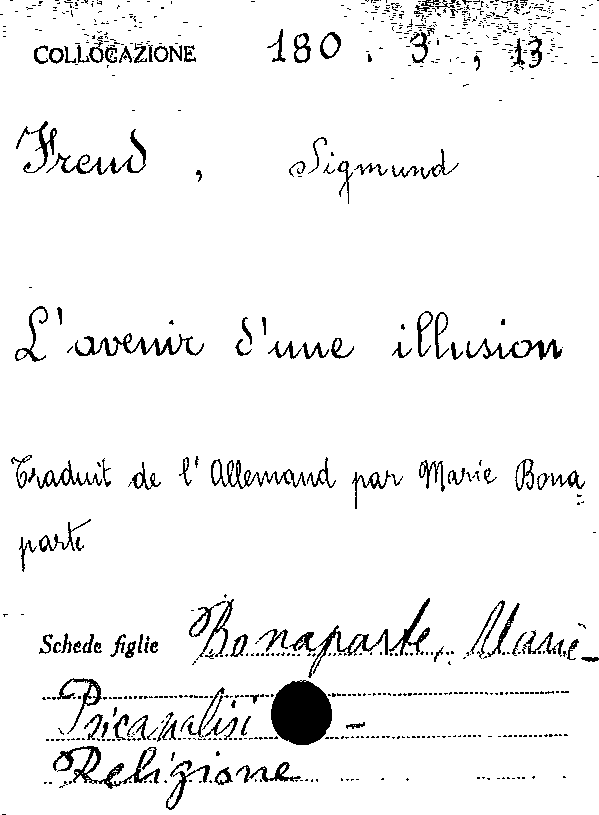 COLLOCAZIONE 180 . 3 , 13
Freud , Sigmund
L'avenir d'une illusion
Traduit de l'Allemand par Marie Bona=
parte
Schede figlie Bonaparte, Marie -
Psicanalisi -
Religione